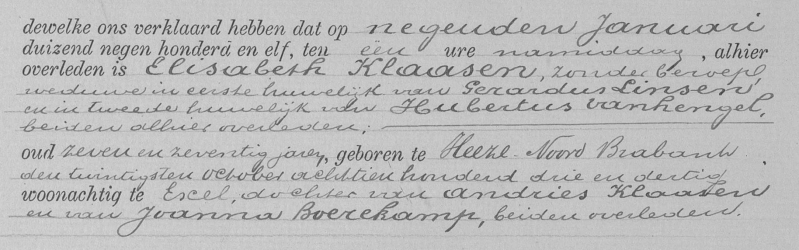 dewelke ons verklaard hebben dat op negenden Januari
duizend negen honderd en elf, ten één ure namiddag, alhier
overleden is Elisabeth Klaasen, zonder beroep,
weduwe in eerste huwelijk van Gerardus Linsen,
en in tweede huwelijk van Hubertus Vanhengel,
beiden alhier overleden;
oud zeven en zeventig jaren, geboren te Heeze-Noord Brabant
den twintigsten october achttien honderd drie en dertig
woonachtig te Excel, dochter van Andries Klaasen
en van Joanna Boerekamp, beiden overleden.